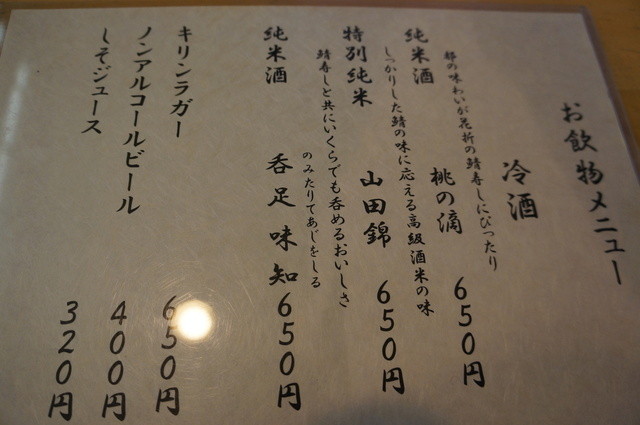 お飲物メニュー
冷酒
都の味わいが花折の鯖寿しにぴったり
純米酒 桃の滴 650円
しっかりした鯖の味に応える高級酒米の味
特別純米 山田錦 650円
鯖寿しと共にいくらでも呑めるおいしさ
のみたりてあじをしる
純米酒 呑足味知 650円
キリンラガー 650円
ノンアルコールビール 400円
しそジュース 320円